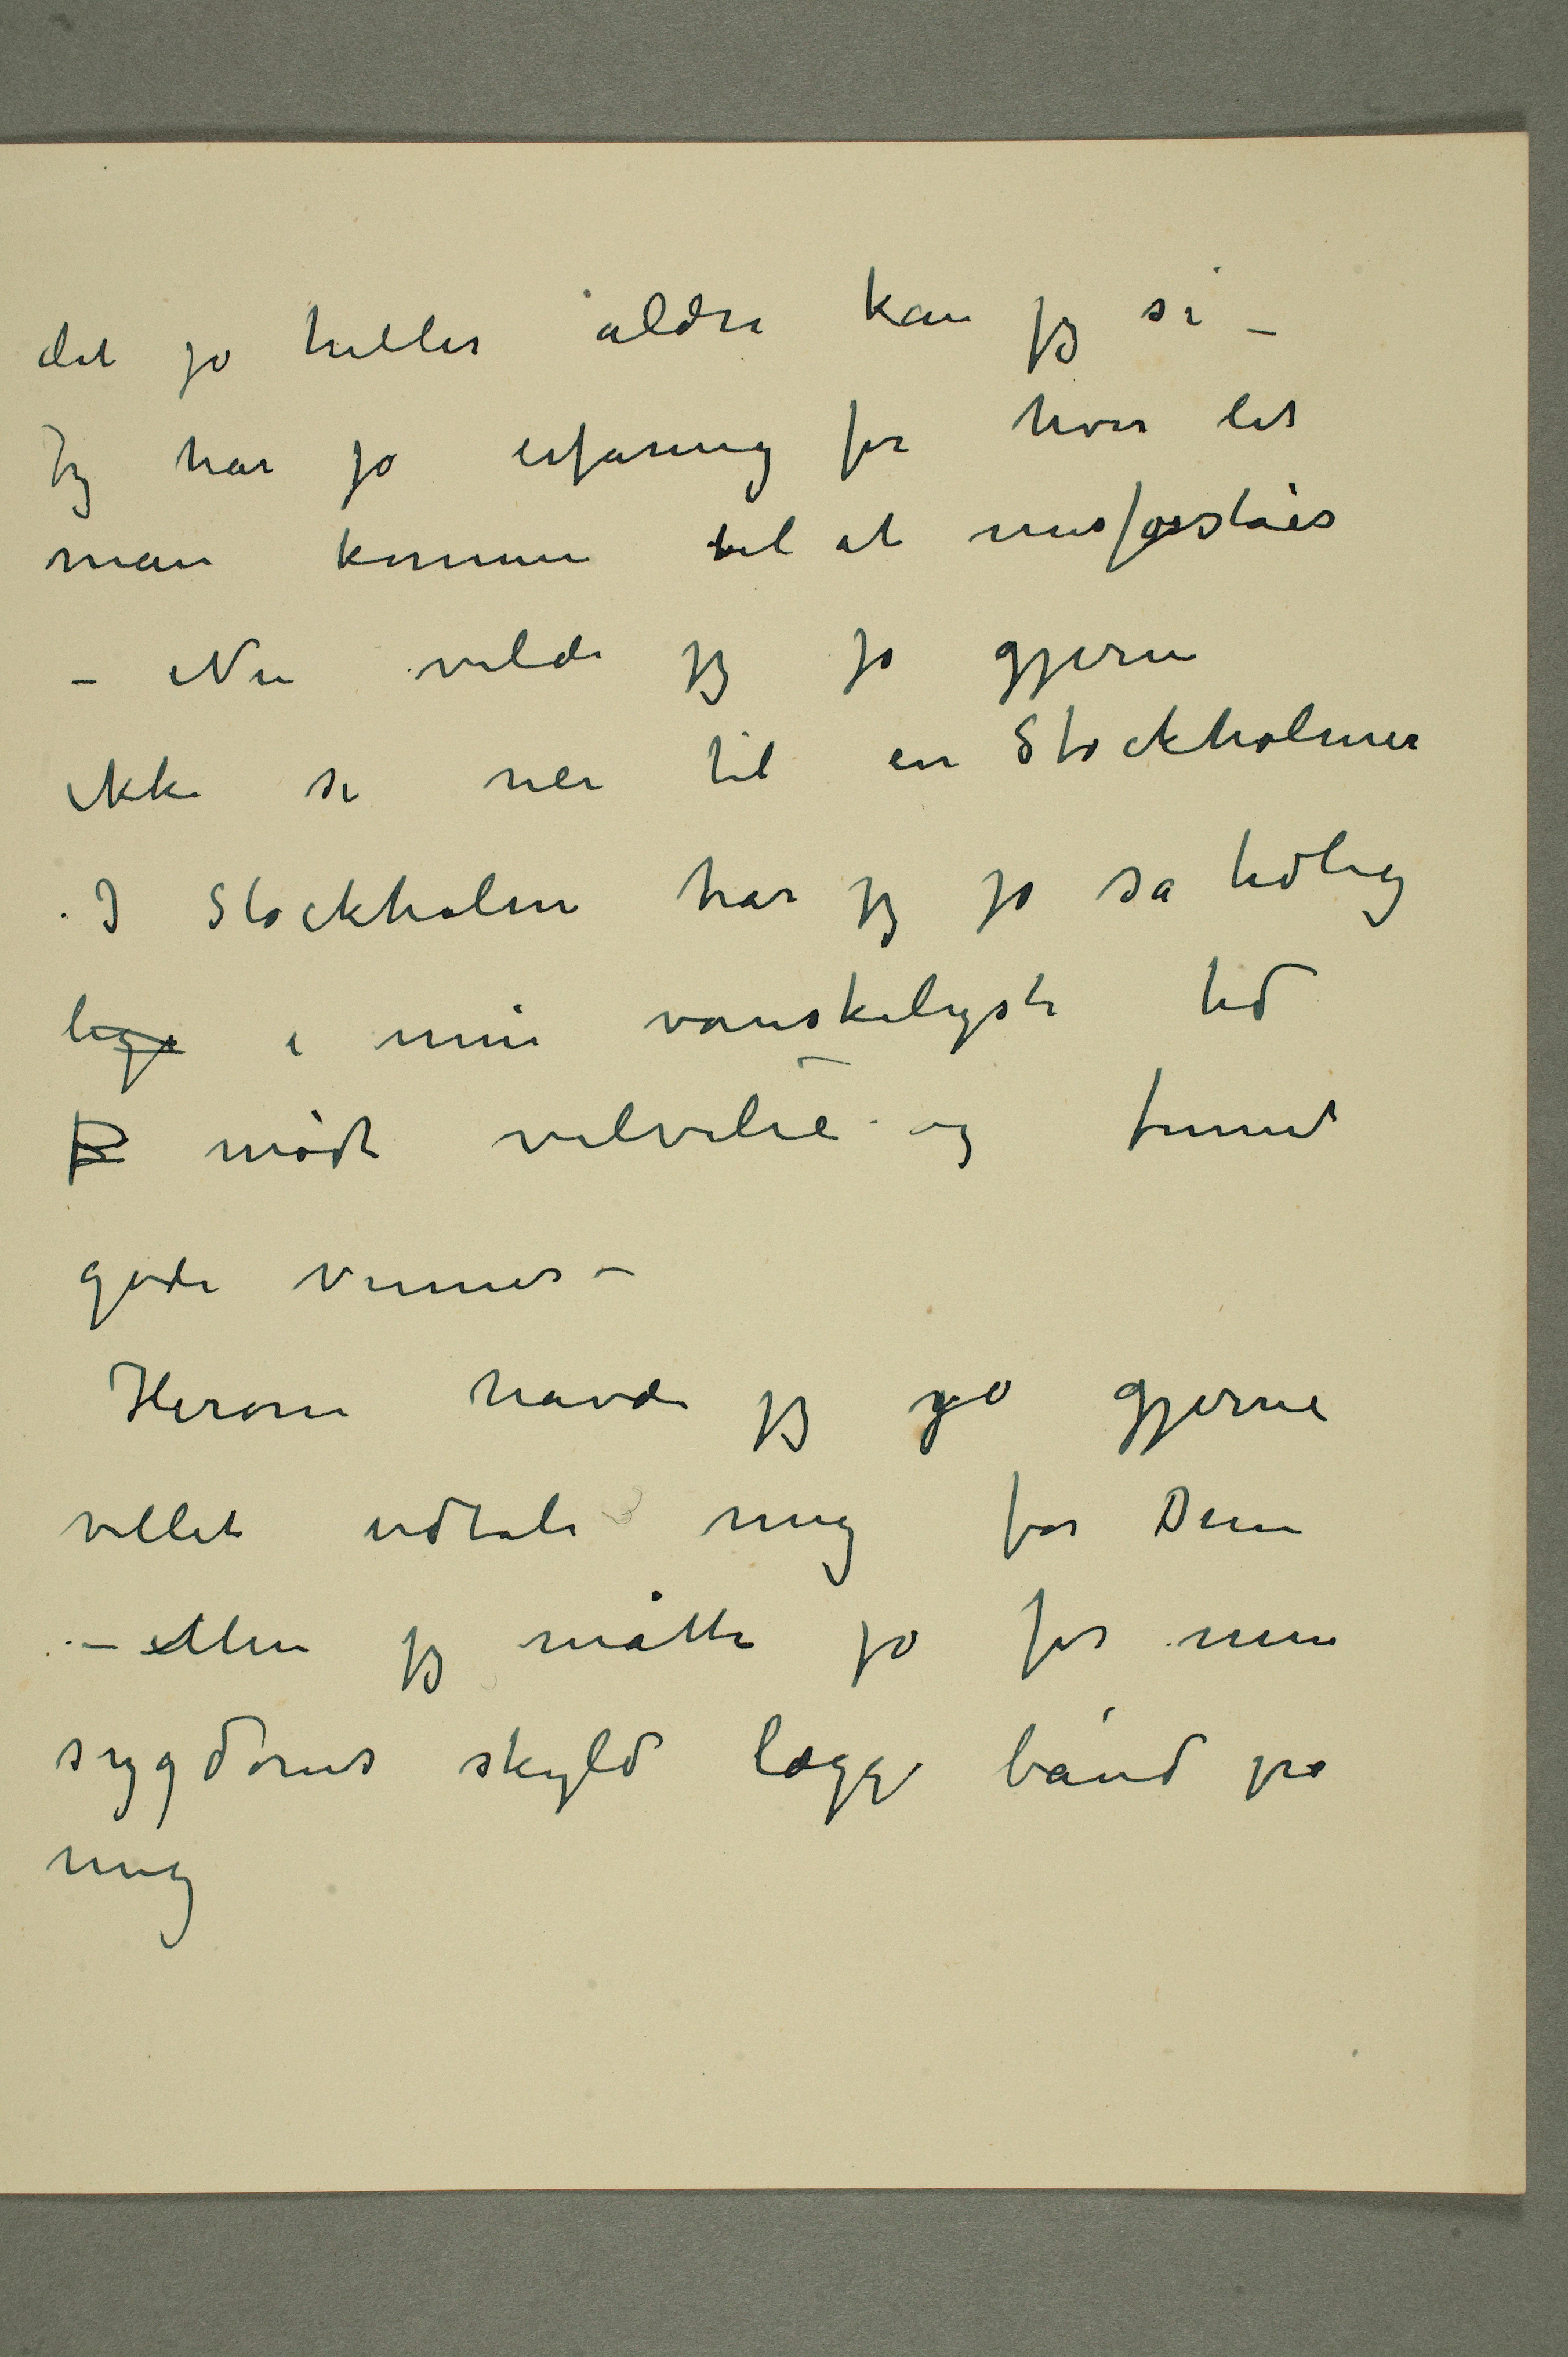 det jo heller aldri kan jeg si –
Jeg har jo erfaring for hvor let
man kommer til at misforståes
– Nu vilde jeg jo gjerne
ikke si nei til en Stockholmer
. I Stockholm har jeg jo så tidlig
lige i min vanskeligste tid
F mødt velvilie og funnet
gode venner –
Herom havde jeg jo gjerne
villet udtale mig for Dem
. – Men jeg måtte jo for min
sygdoms skyld lægge bånd på
mig